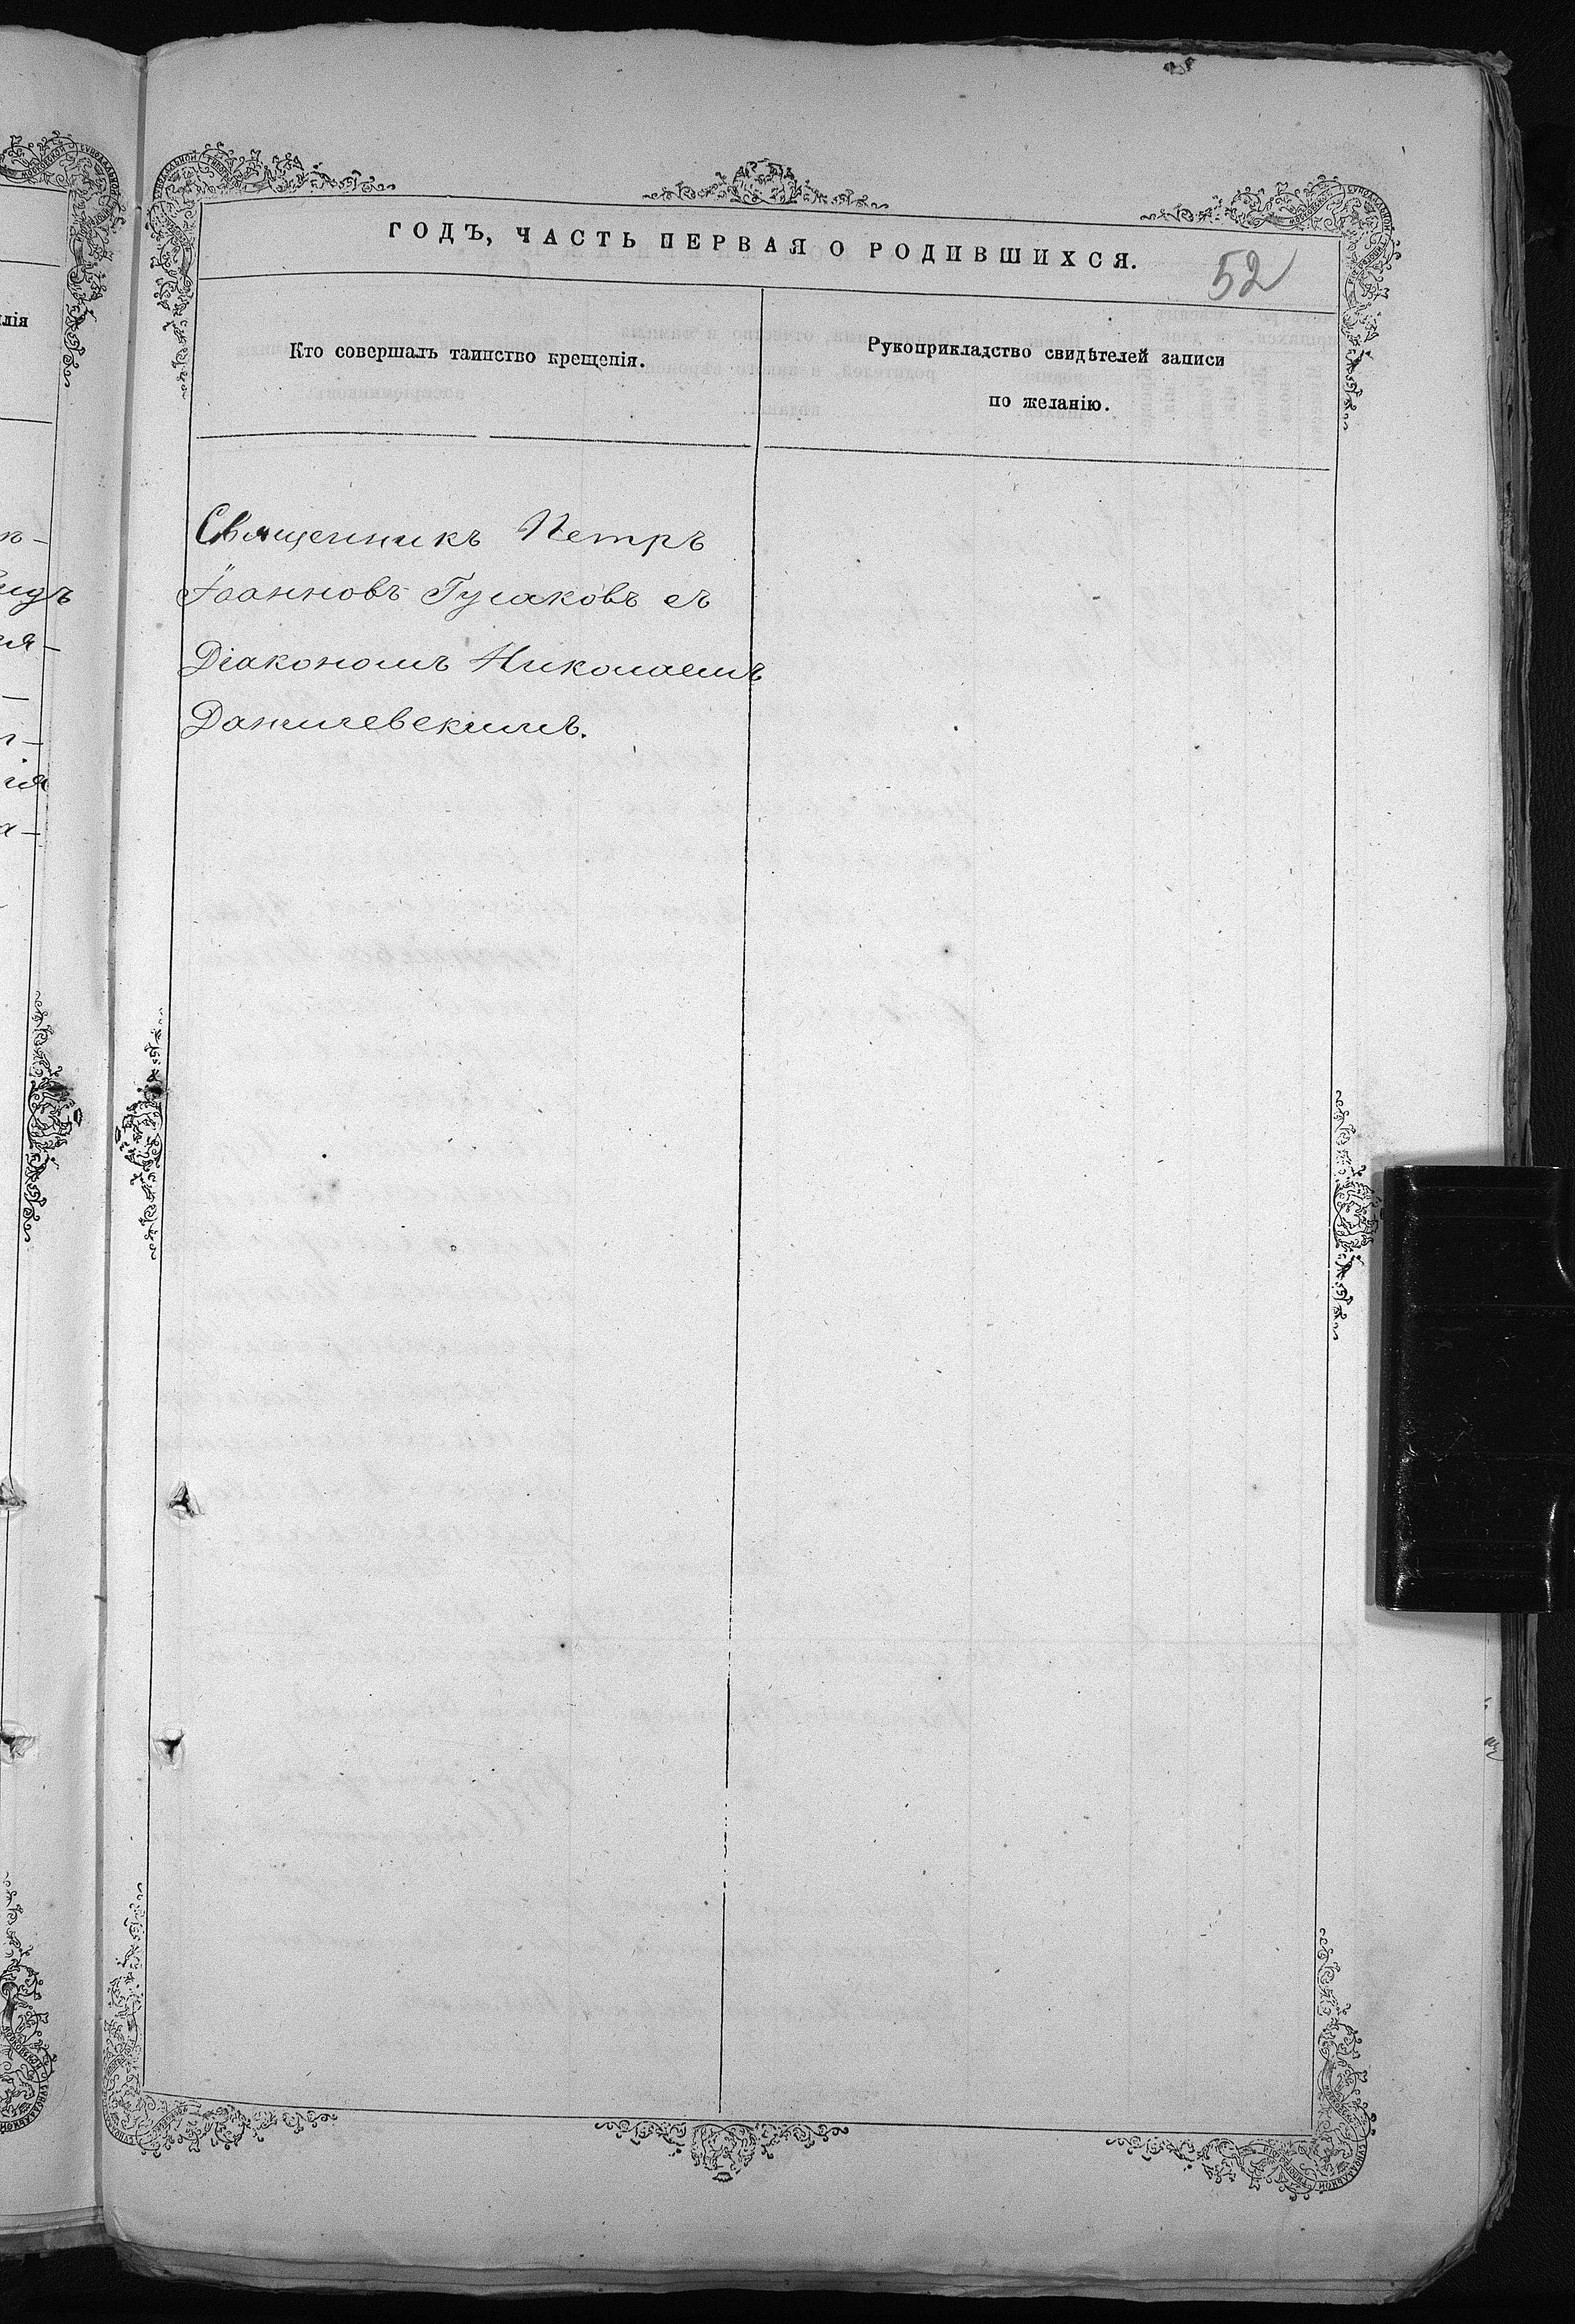 ГОДЪ, ЧАСТЬ ПЕРВАЯ О РОДИВШИХСЯ.
52
Кто совершалъ таинство крещенія.
Рукоприкладство свидѣтелей записи
по желанію.
Священникъ Петръ
Іоанновъ Гусаковъ съ
Діакономъ Николаемъ
Данилевскимъ.